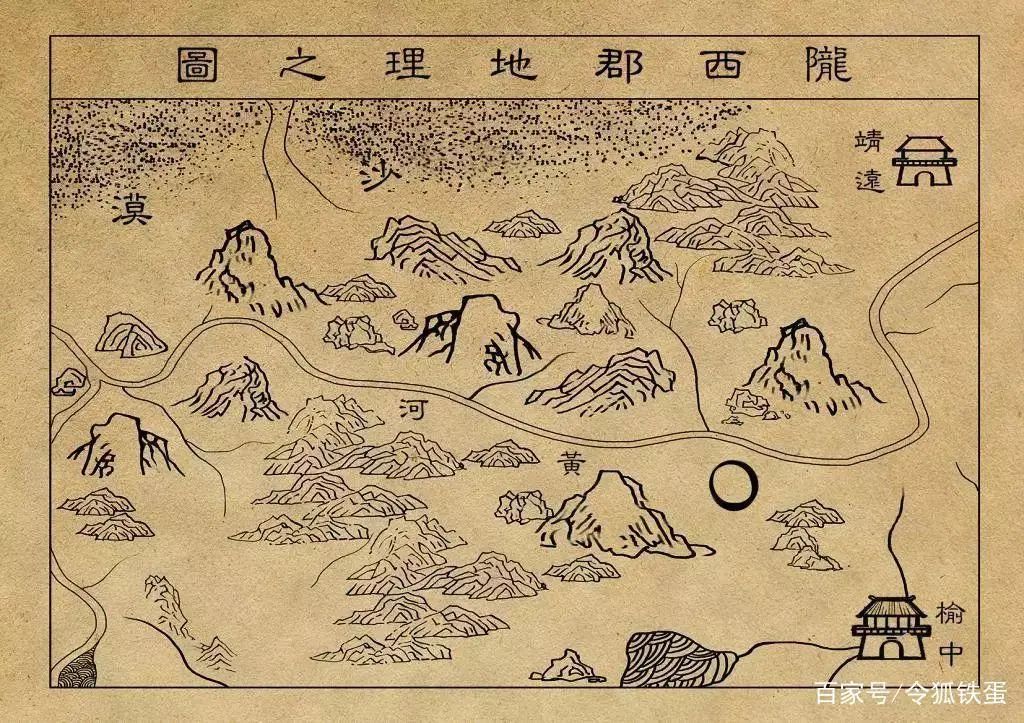 隴西郡地理之圖
沙漠
靖遠
黃河
榆中
百家号/令狐铁蛋